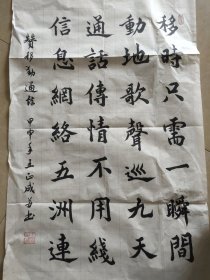 移時只需一瞬間
動地歌聲巡九天
通話傳情不用綫
信息網絡五洲連
贊移動通信
甲申年王正成書